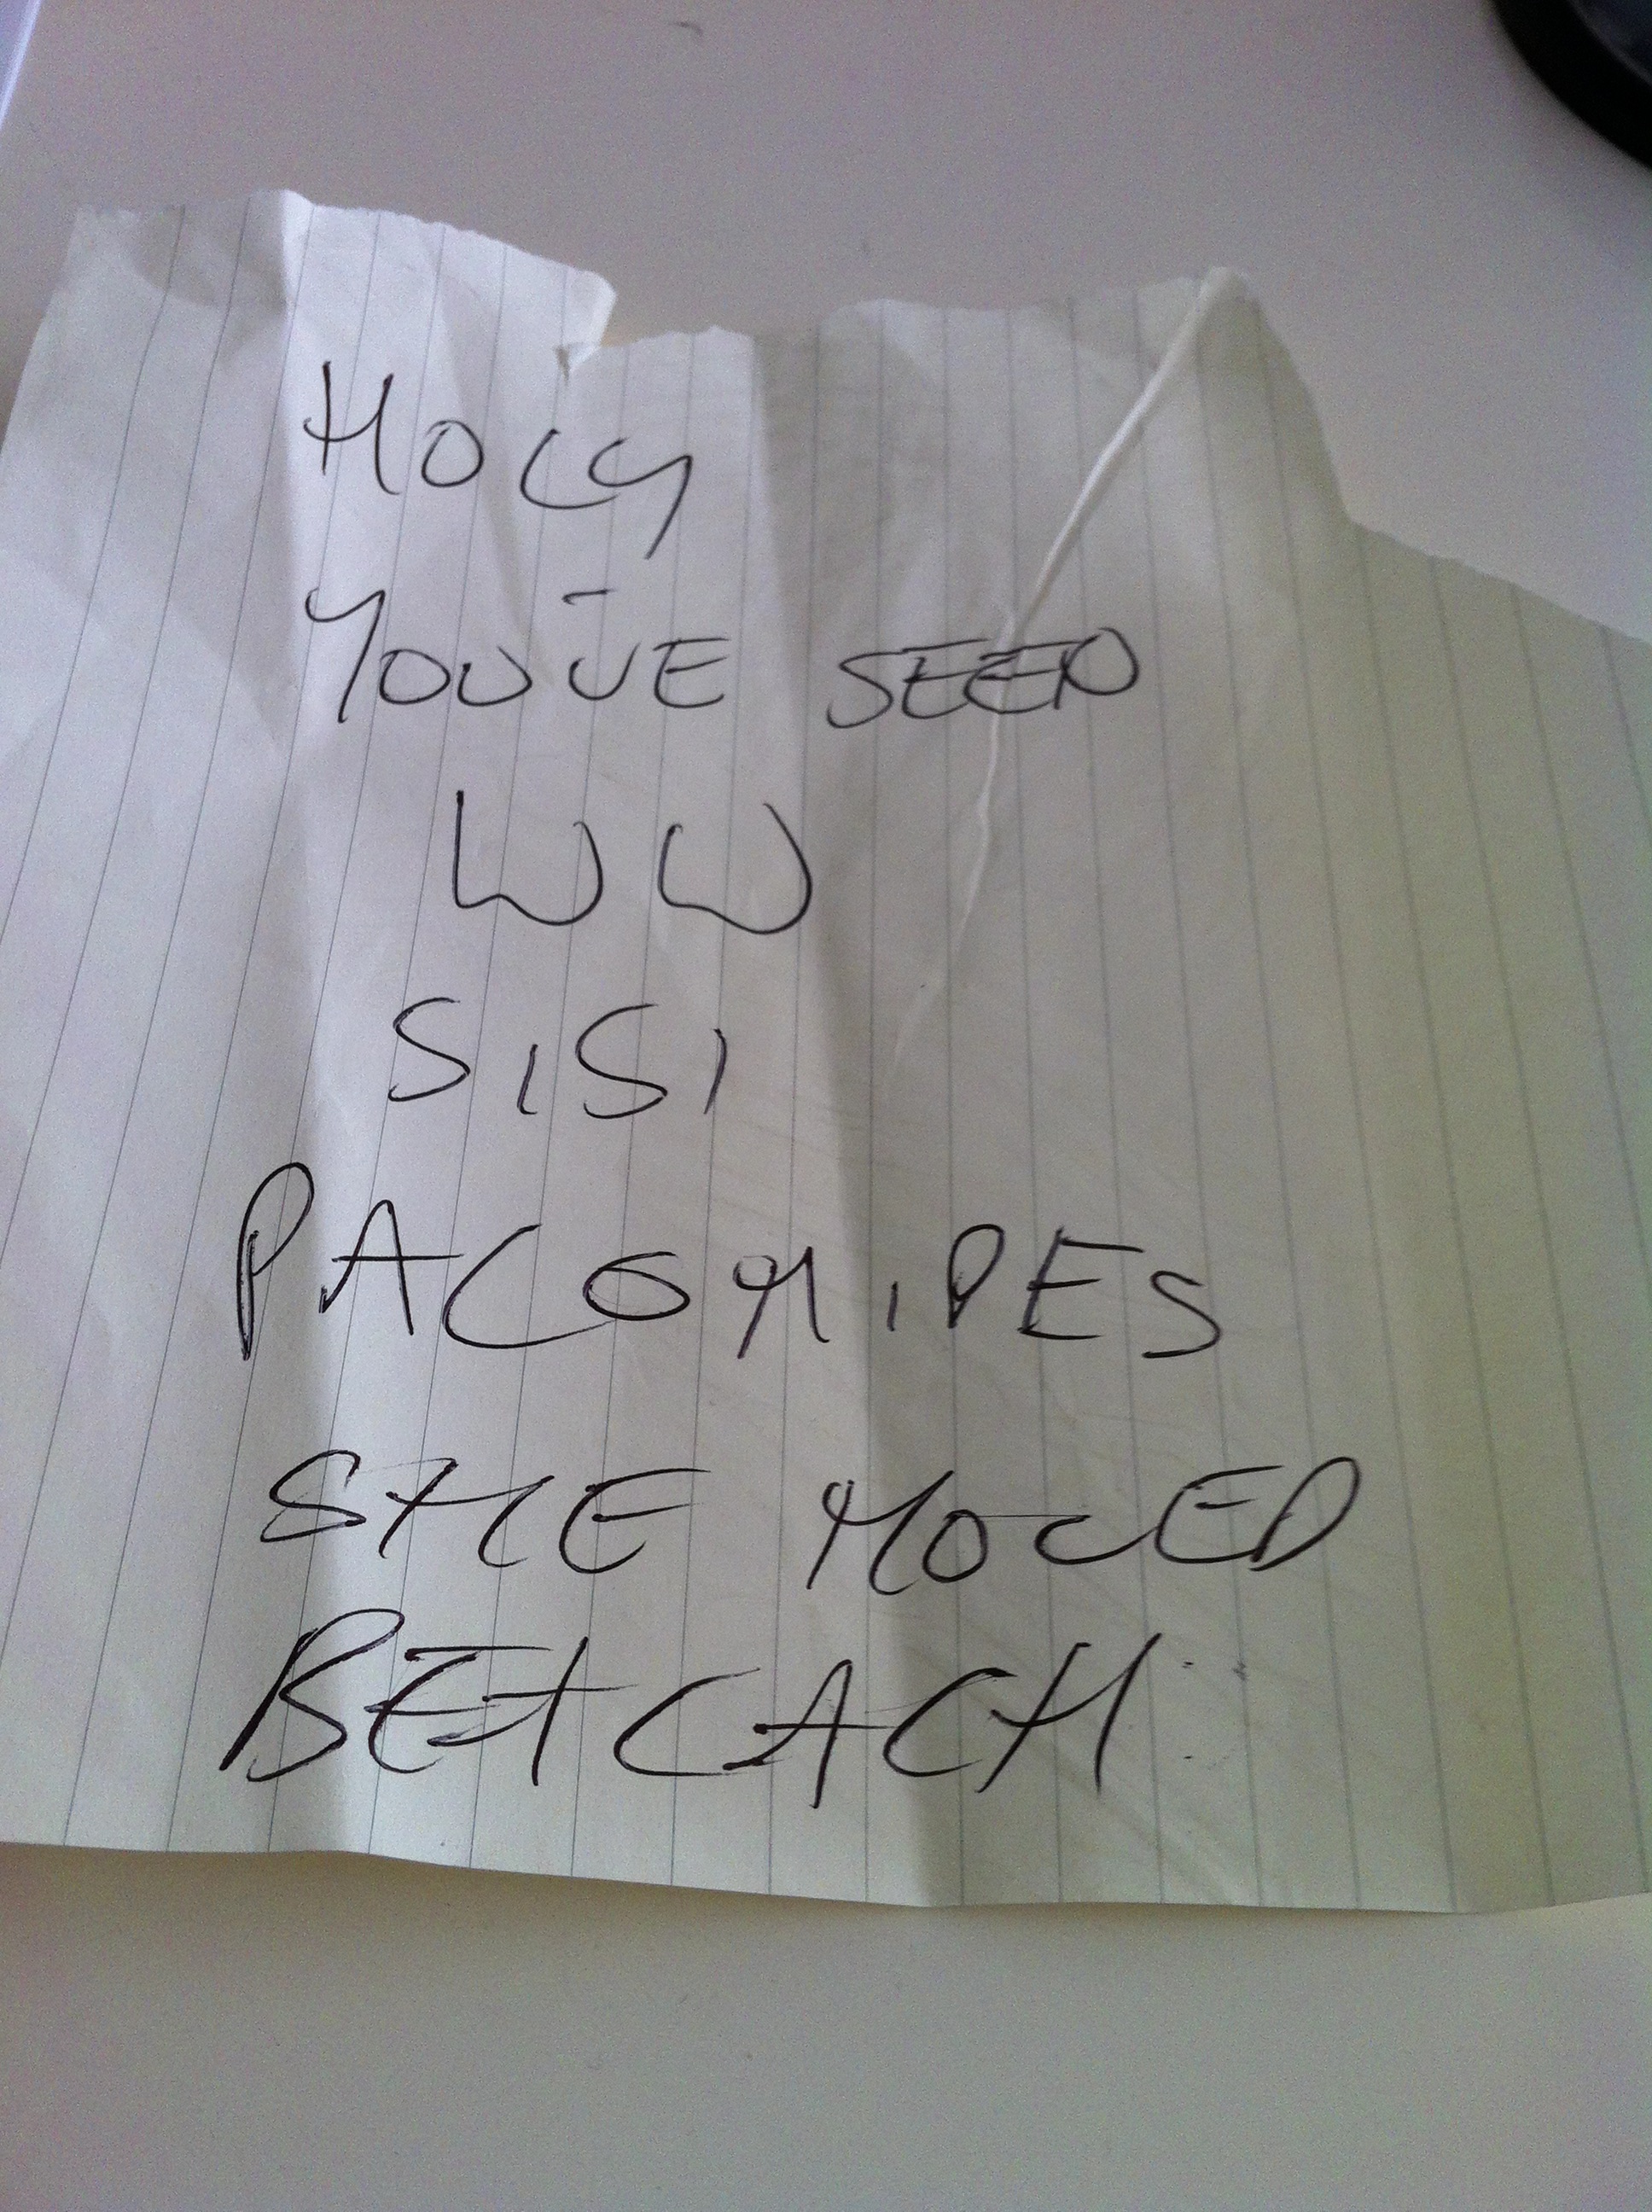 HOLY
YOU'VE SEEN
W W
SISI
PALOMIDES
SHE MOVED
BETLACH